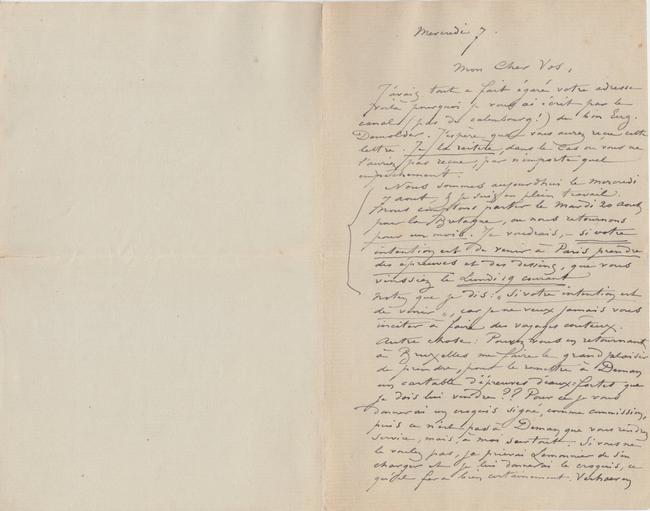 Mercredi 7
Mon Cher Vos,
J'avais tout a fait égaré votre adresse
voilà pourquoi je vous ai écrit par le
canal (pas de calembourg!) du bon Eug.
Demolder. J'espère que vous aurez reçue cette
lettre. Je la réitère, dans le cas ou vous ne
l'auriez pas reçue, par n'importe quel
empêchement.
Nous sommes aujourdhui le mercredi
7 aout, & je suis en plein travail.
Nous comptons partir le Mardi 20 aout
pour la Bretagne, ou nous retournons
pour un mois. Je voudrais, – si votre
intention est de venir à Paris prendre
des épreuves et des dessins, que vous
vinssiez le Lundi 19 courant
notez que je dis: "si votre intention est
de venir", car je ne veux jamais vous
inciter à faire des voyages couteux.
Autre chose: Pouvez vous en retournant
à Bruxelles me faire le grand plaisir
de prendre, pour le remettre à Deman
un cartable d'épreuves d'eaux-fortes que
je dois lui vendre?? Pour ce je vous
donnerai un croquis signé, comme commission,
puis ce n'est pas à Deman que vous rendrez
service, mais à moi surtout. Si vous ne
le voulez pas, je prierai Lemonnier de s'en
charger et je lui donnerai le croquis, ce
qu'il fera bien certainement. Verhaeren